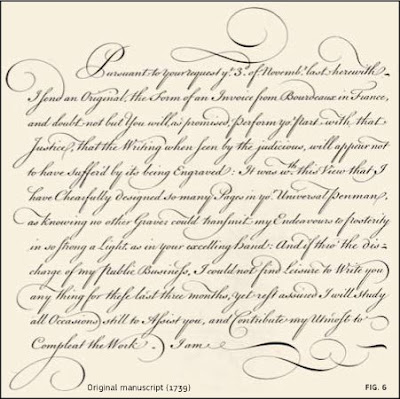 Pursuant to your request yᵉ 3ᵈ of Novembʳ last herewith
I send an Original, the Form of an Invoice from Bourdeaux in France,
and doubt not but You will, as promised, perform yoʳ part with that
Justice, that the Writing when seen by the judicious, will appear not
to have Suffer'd by its being Engraved: It was wᵗʰ this View that I
have Chearfully designed so many Pages in yoʳ Universal Penman,
as knowing no other Graver could transmit my Endeavours to posterity
in so strong a Light as in your excelling hand: And if thro' the dis-
charge of my Publick Business, I could not find Leisure to Write you
any thing for these last three months, yet rest assured I will Study
all Occasions still to Assist you, and Contribute my Utmost to
Compleat the Work. I am
Original manuscript (1739)
FIG. 6